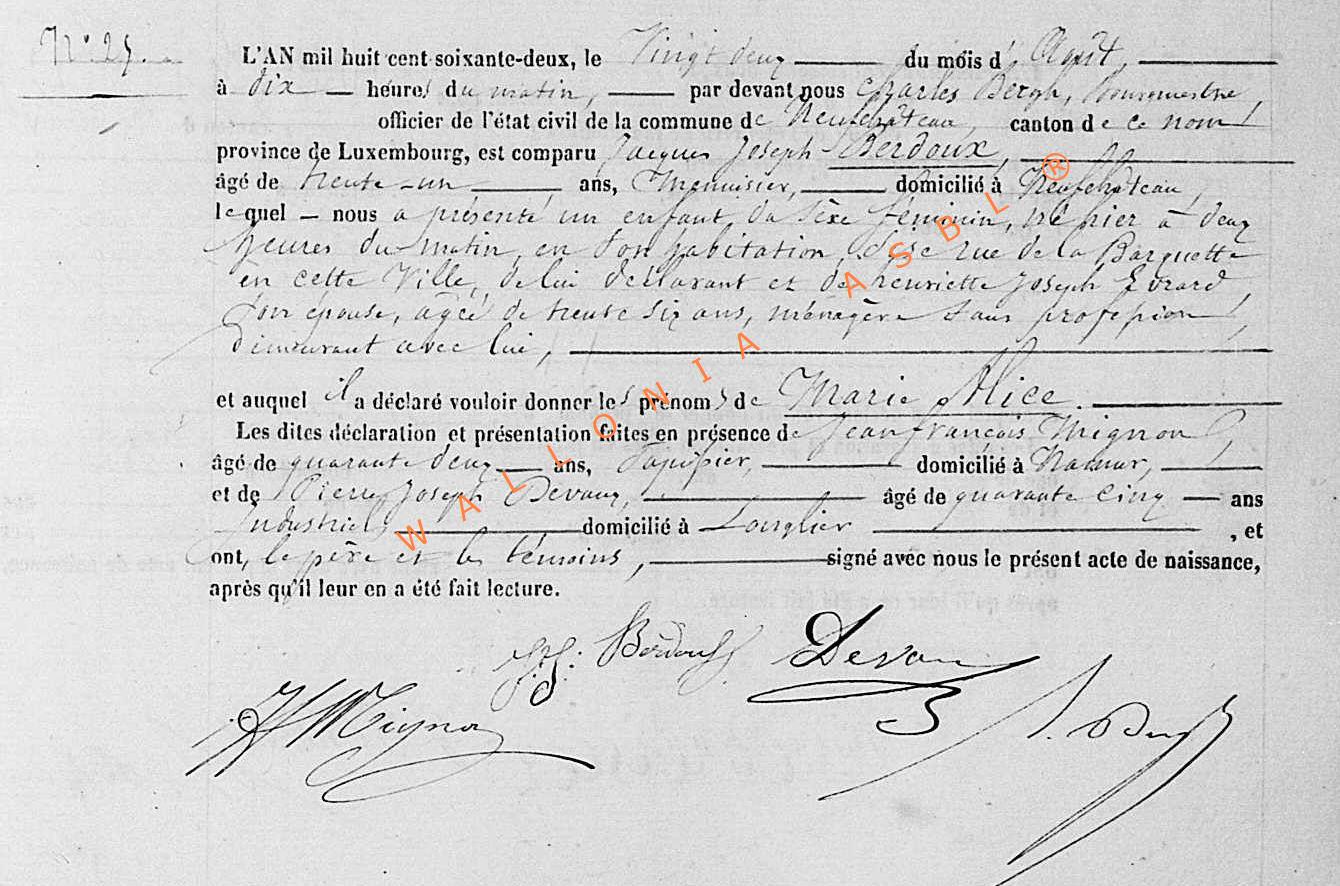 N° 25.
L'AN mil huit cent soixante-deux, le Vingt deux du mois d'Août,
à dix heures du matin, par devant nous Charles Bergh, Bourgmestre,
officier de l'état civil de la commune de Neufchâteau, canton de ce nom,
province de Luxembourg, est comparu Jacques Joseph Berdoux,
âgé de trente-un ans, Menuisier, domicilié à Neufchâteau,
lequel nous a présenté un enfant du sèxe féminin, né hier à deux
heures du matin, en son habitation, sise rue de la Barquette
en cette Ville, de lui déclarant et de henriette Joseph Evrard,
son épouse, agée de trente six ans, ménagère sans profession,
demeurant avec lui,
et auquel il a déclaré vouloir donner les prénoms de Marie Alice.
Les dites déclaration et présentation faites en présence de Jean françois Mignon,
âgé de quarante deux ans, Tapissier, domicilié à Namur,
et de Pierre Joseph Devaux, âgé de quarante cinq ans
Industriel, domicilié à Longlier, et
ont, le père et les témoins, signé avec nous le présent acte de naissance,
après qu'il leur en a été fait lecture.
J. J. Berdoux Devaux
Mignon
WALLONIA ASBL ®